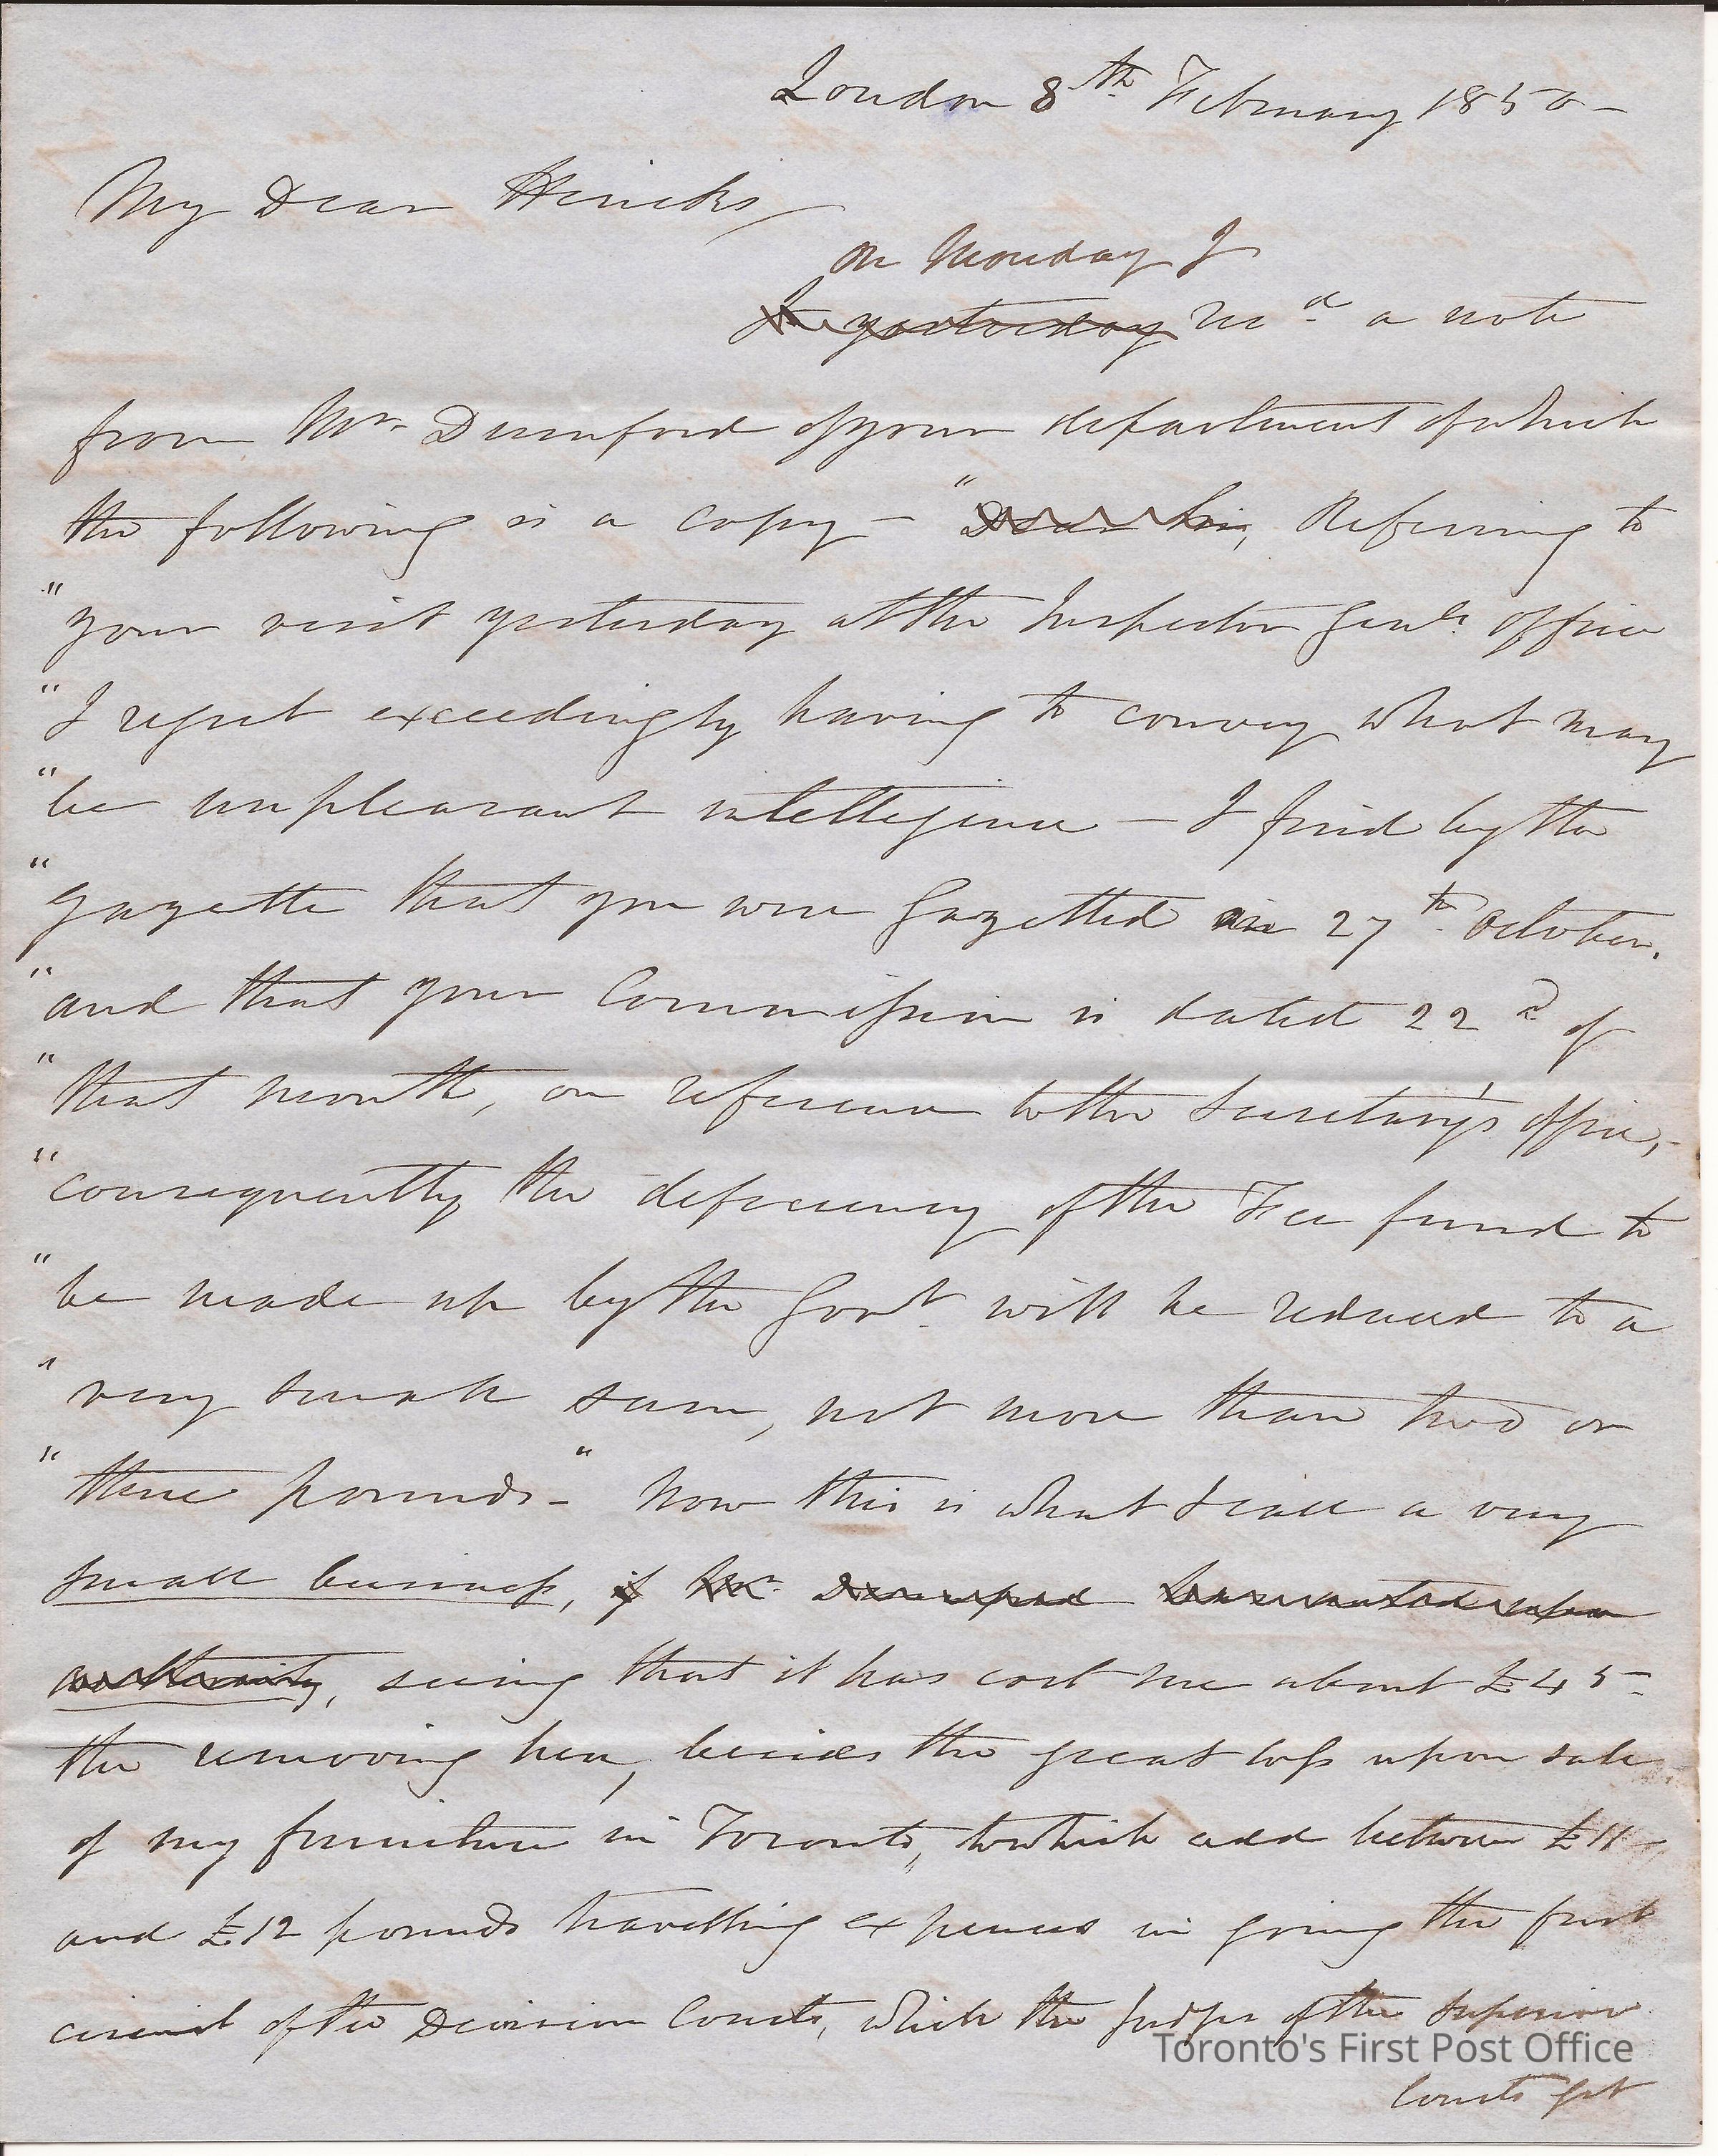 London 8th February 1850 -
My Dear Hincks
On Monday I
I yesterday recd a note
from Mr. Dunford of your department of which
the following is a copy - "Dear Sir, Referring to
"your visit yesterday at the Inspector Genls. office
"I regret exceedingly having to convey what may
"be unpleasant intellegence - I find by the
"gazette that you were Gazetted in 27th October,
"and that your Commission is dated 22d of
"that month, on reference to the Secretary's office,
"consequently the deficiency of the Fee fund to
"be made up by the Govt. will be reduced to a
"very small sum, not more than two or
"three pounds -" Now this is what I call a very
small business, if Mr. Dunford has acted upon
authority, seeing that it has cost me about £45-
the removing here, besides the great loss upon sale
of my furniture in Toronto, to which add between £11
and £12 pounds travelling expenses in going the first
circuit of the Division Courts, which the Judges of the Superior
Courts get
Toronto's First Post Office